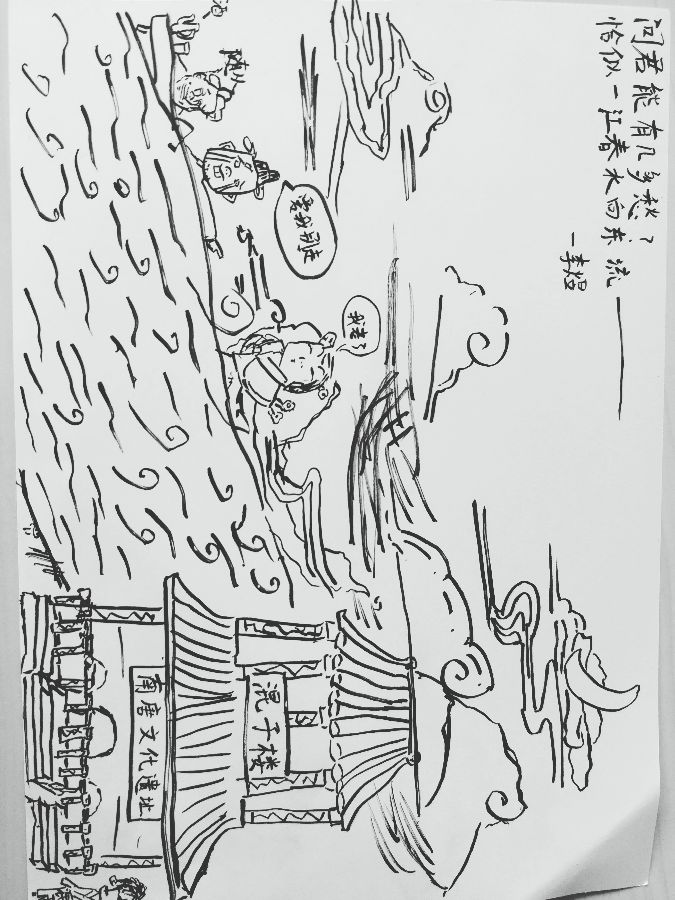 问君能有几多愁?
恰似一江春水向东流——
—李煜
等我别走
我老了
混子楼
南唐文化遗址